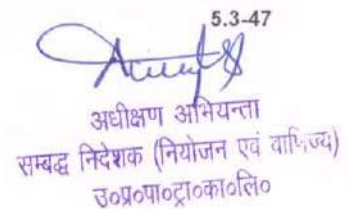 5.3-47
अधीक्षण अभियन्ता
सम्बद्ध निदेशक (नियोजन एवं वाणिज्य)
उ०प्र०पा०ट्रा०का०लि०